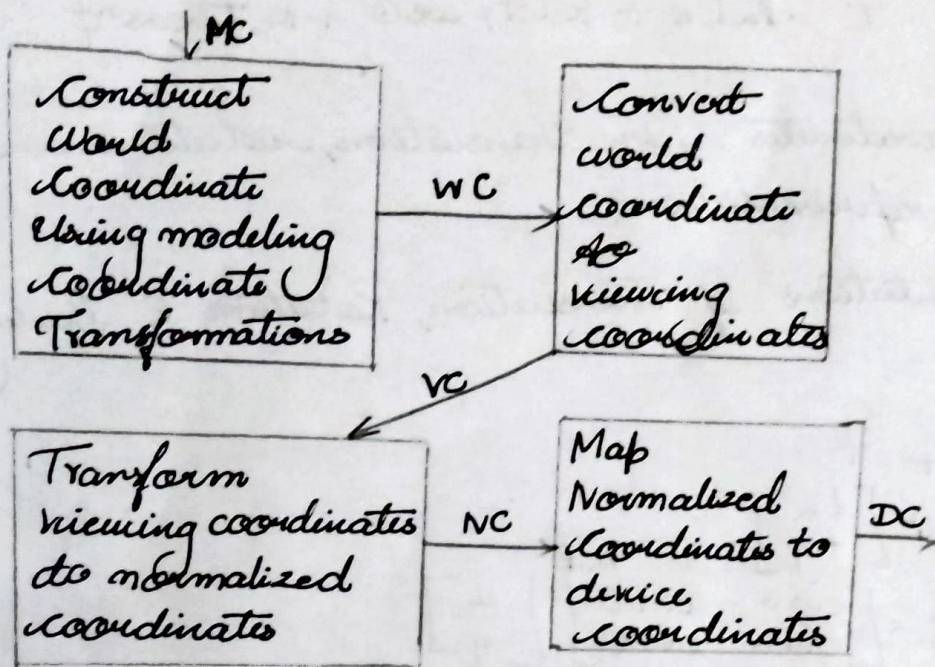 MC
Construct
World
Coordinate
Using modeling
Coordinate
Transformations
WC
Convert
world
coordinate
to
viewing
coordinates
VC
Transform
viewing coordinates
to normalized
coordinates
NC
Map
Normalized
Coordinates to
device
coordinates
DC